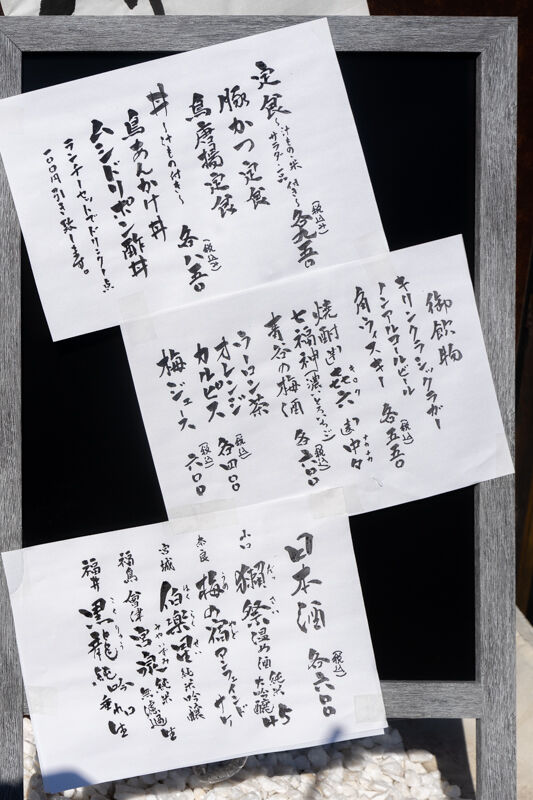 定食〜汁もの・米 付き〜
サラダ一品
豚かつ定食
鳥唐揚定食
(税込み)各九五〇
丼〜汁もの付き〜
鳥あんかけ丼
ムシドリポン酢丼
(税込み)各八五〇
ランチーセットでドリンク一点
一〇〇円引き致します。
御飲物
キリンクラシックラガー
ノンアルコールビール
角ウイスキー
(税込)各五五〇
焼酎
㐂六 キロク
中々 ナカナカ
七福神(濃いとろとろ)
青谷の梅酒
(税込)各六〇〇
ウーロン茶
オレンジ
カルピス
(税込)各四〇〇
梅ジュース
(税込)六〇〇
日本酒
(税込)各六〇〇
山口 獺祭 だっさい 温め酒 純米大吟醸45
奈良 梅の宿 うめのやど アンフィルタード サケ
宮城 伯楽星 はくらくせい 純米吟醸
福島 會津宮泉 みやいずみ 純米 無濾過 生
福井 黒龍 こくりゅう 純吟 垂れ口 生